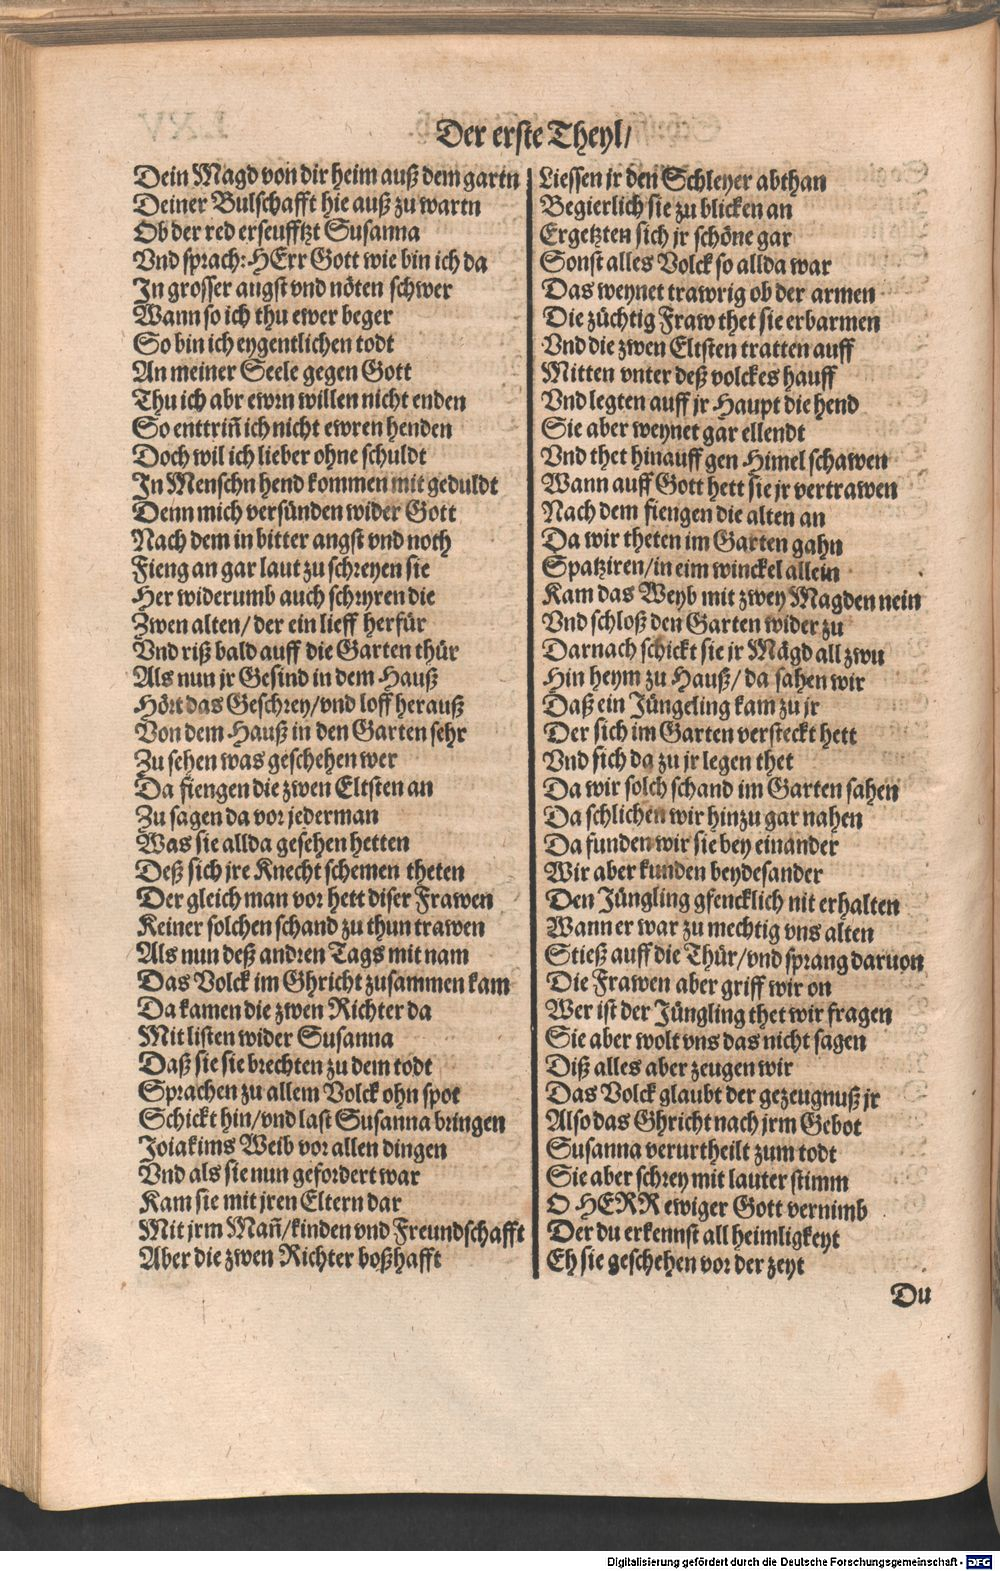 Der erste Theyl/
Dein Magd von dir heim auß dem gartn
Deiner Bulschafft hie auß zu wartn
Ob der red erseufftzt Susanna
Vnd sprach: HErr Gott wie bin ich da
In grosser angst vnd nöten schwer
Wann so ich thu ewer beger
So bin ich eygentlichen todt
An meiner Seele gegen Gott
Thu ich abr ewrn willen nicht enden
So enttriñ ich nicht ewren henden
Doch wil ich lieber ohne schuldt
In Menschn hend kommen mit geduldt
Denn mich versünden wider Gott
Nach dem in bitter angst vnd noth
Fieng an gar laut zu schreyen sie
Her widerumb auch schryren die
Zwen alten/ der ein lieff herfür
Vnd riß bald auff die Garten thür
Als nun jr Gesind in dem Hauß
Hört das Geschrey/vnd loff herauß
Von dem Hauß in den Garten sehr
Zu sehen was geschehen wer
Da fiengen die zwen Eltsten an
Zu sagen da vor jederman
Was sie allda gesehen hetten
Deß sich jre Knecht schemen theten
Der gleich man vor hett diser Frawen
Keiner solchen schand zu thun trawen
Als nun deß andren Tags mit nam
Das Volck im Ghricht zusammen kam
Da kamen die zwen Richter da
Mit listen wider Susanna
Daß sie sie brechten zu dem todt
Sprachen zu allem Volck ohn spot
Schickt hin/vnd last Susanna bringen
Joiakims Weib vor allen dingen
Vnd als sie nun gefordert war
Kam sie mit jren Eltern dar
Mit jrm Mañ/kinden vnd Freundschafft
Aber die zwen Richter boßhafft
Liessen jr den Schleyer abthan
Begierlich sie zu blicken an
Ergetzten sich jr schöne gar
Sonst alles Volck so allda war
Das weynet trawrig ob der armen
Die züchtig Fraw thet sie erbarmen
Vnd die zwen Eltsten tratten auff
Mitten vnter deß volckes hauff
Vnd legten auff jr Haupt die hend
Sie aber weynet gar ellendt
Vnd thet hinauff gen Himel schawen
Wann auff Gott hett sie jr vertrawen
Nach dem fiengen die alten an
Da wir theten im Garten gahn
Spatziren/in eim winckel allein
Kam das Weyb mit zwey Magden nein
Vnd schloß den Garten wider zu
Darnach schickt sie jr Mägd all zwu
Hin heym zu Hauß/ da sahen wir
Daß ein Jüngeling kam zu jr
Der sich im Garten versteckt hett
Vnd sich da zu jr legen thet
Da wir solch schand im Garten sahen
Da schlichen wir hinzu gar nahen
Da funden wir sie bey einander
Wir aber kunden beydesander
Den Jüngling gfencklich nit erhalten
Wann er war zu mechtig vns alten
Stieß auff die Thür/vnd sprang daruon
Die Frawen aber griff wir on
Wer ist der Jüngling thet wir fragen
Sie aber wolt vns das nicht sagen
Diß alles aber zeugen wir
Das Volck glaubt der gezeugnuß jr
Also das Ghricht nach jrm Gebot
Susanna verurtheilt zum todt
Sie aber schrey mit lauter stimm
O HERR ewiger Gott vernimb
Der du erkennst all heimligkeyt
Eh sie geschehen vor der zeyt
Du
Digitalisierung gefördert durch die Deutsche Forschungsgemeinschaft - DFG